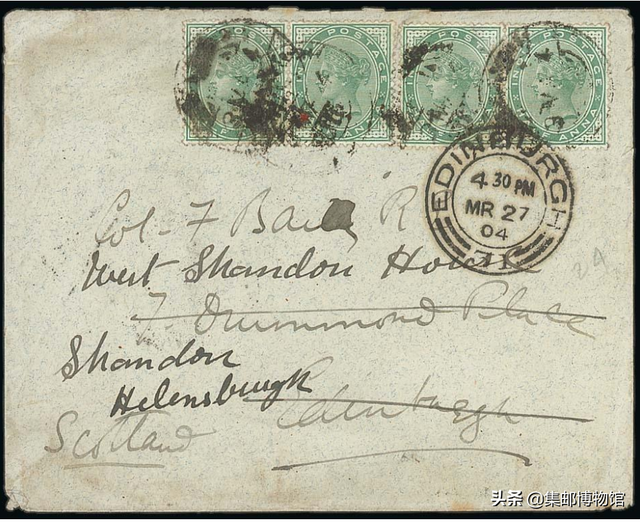 POSTAGE POSTAGE POSTAGE POSTAGE
ANNA ANNA
EDINBURGH
4 30 PM
MR 27
04
Col - F R
West Shandon House
7 Drummond Place
Shandon
Helensburgh
Edinburgh
Scotland
头条 @集邮博物馆